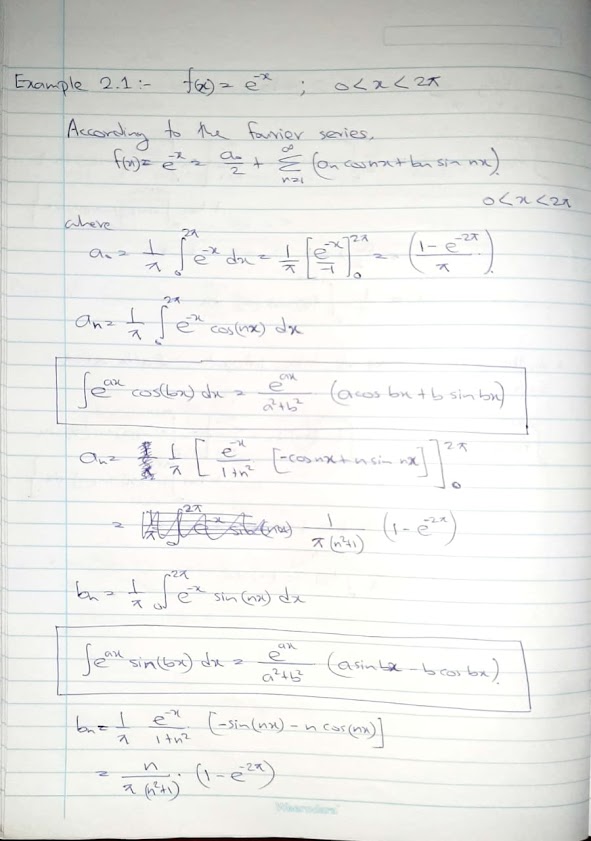 Example 2.1:- f(x) = e^-x ; 0 < x < 2π
According to the fourier series,
f(x) = e^-x = a₀/2 + ∑_{n=1}^{∞} (an cos nx + bn sin nx)
0 < x < 2π
where
a₀ = 1/π ∫_0^{2π} e^-x dx = 1/π [e^-x/-1]_0^{2π} = (1 - e^-2π / π)
an = 1/π ∫_0^{2π} e^-x cos(nx) dx
∫e^ax cos(bx) dx = e^ax/(a²+b²) (a cos bx + b sin bx)
an = 1/π [e^-x/(1+n²) [-cos nx + n sin nx]]_0^{2π}
= 1/(π(n²+1)) (1 - e^-2π)
bn = 1/π ∫_0^{2π} e^-x sin(nx) dx
∫e^ax sin(bx) dx = e^ax/(a²+b²) (a sin bx - b cos bx)
bn = 1/π e^-x/(1+n²) [-sin(nx) - n cos(nx)]
= n/(π(n²+1)) · (1 - e^-2π)